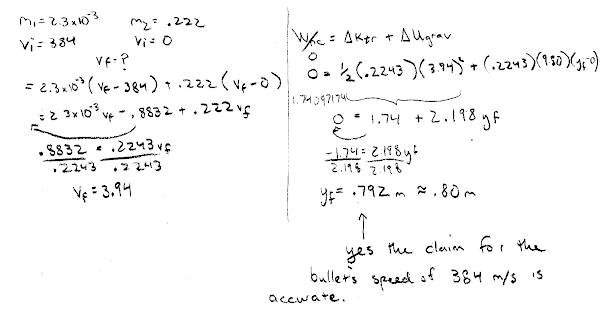 m₁ = 2.3x10⁻³ m₂ = .222
vi = 384 vi = 0
vf = ?
= 2.3x10⁻³ (vf - 384) + .222 (vf - 0)
= 2.3x10⁻³ vf - .8832 + .222 vf
.8832 = .2243 vf
.2243 .2243
vf = 3.94
Wnc = ΔKtr + ΔUgrav
0
0 = 1/2 (.2243)(3.94)² + (.2243)(9.80)(yf-0)
1.740971741
0 = 1.74 + 2.198 yf
-1.74 = 2.198 yf
2.198 2.198
yf = .792 m ≈ .80 m
yes the claim for the
bullet's speed of 384 m/s is
accurate.